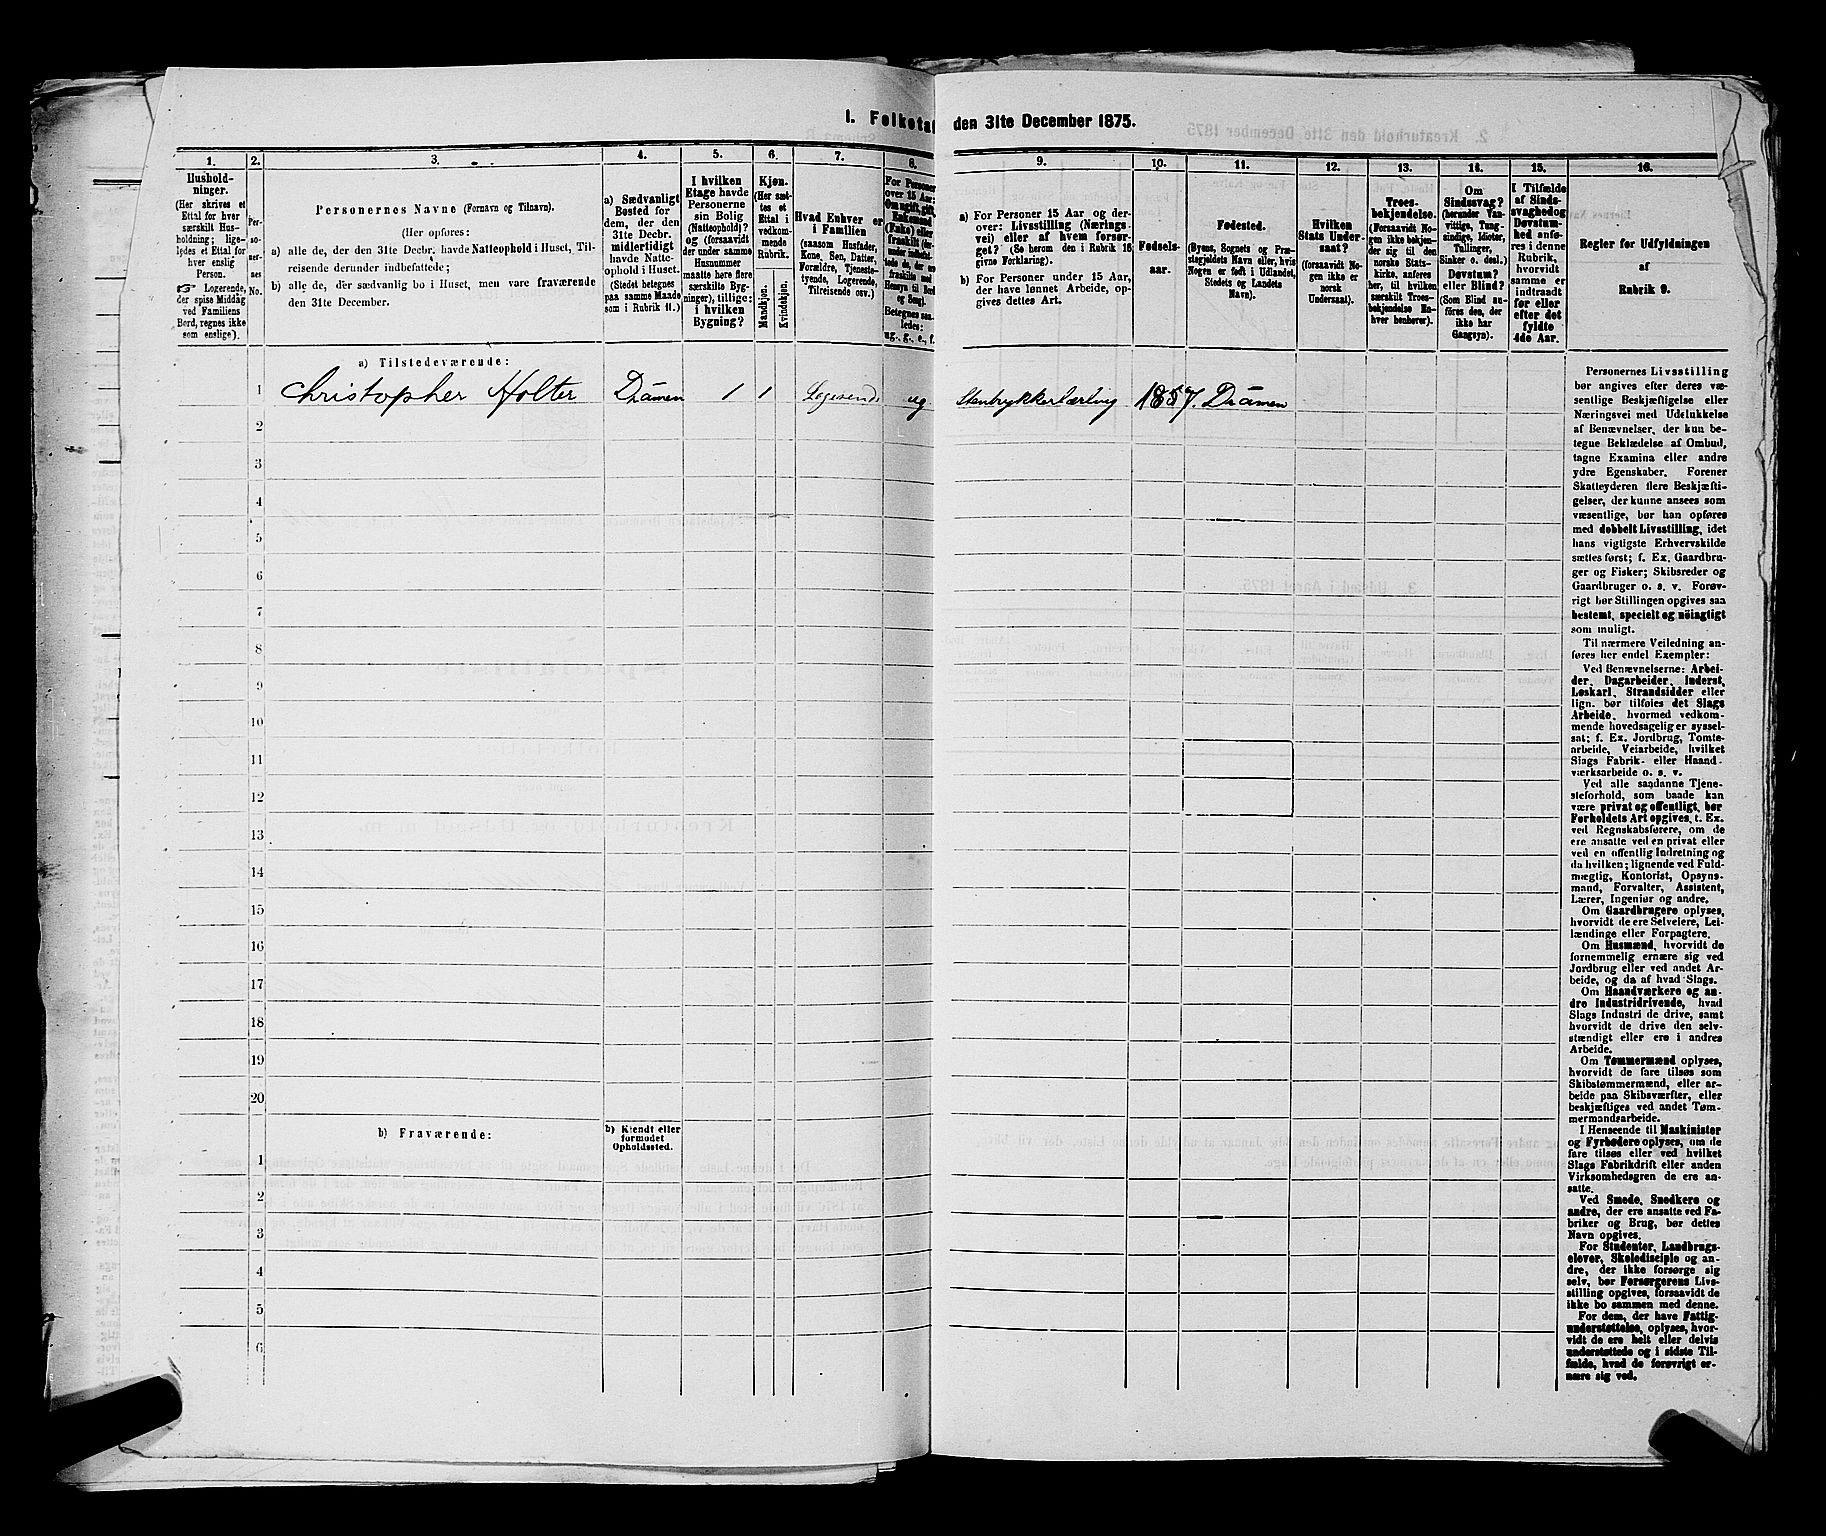 1. Folketal den 31te December 1875.
1. 2. 3. 4. 5. 6. 7. 8. 9. 10. 11. 12. 13. 14. 15. 16.
Hushold-
ninger.
(Her skrives et
Ettal for hver
særskilt Hus-
holdning; lige-
ledes et Ettal for
hver enslig
Person.
☞ Logerende,
der spise Middag
ved Familiens
Bord, regnes ikke
som enslige).
Per-
so-
ner-
nes
No.
Personernes Navne (Fornavn og Tilnavn).
(Her opføres:
a) alle de, der den 31te Decbr. havde Natteophold i Huset, Til-
reisende derunder indbefattede;
b) alle de, der sædvanlig bo i Huset, men vare fraværende
den 31te December.
a) Sædvanligt
Bosted for
dem, der den
31te Decbr.
midlertidigt
havde Natte-
ophold i Huset.
(Stedet betegnes
paa samme Maade
som i Rubrik 11.)
I hvilken
Etage havde
Personerne
sin Bolig
(Natteophold)?
og (forsaavidt
der under samme
Husnummer
maatte høre flere
særskilte Byg-
ninger), tillige:
i hvilken
Bygning?
Kjøn.
(Her sæt-
tes et
Ettal i
vedkom-
mende
Rubrik.
Mandkjøn.
Kvindekjøn.
Hvad Enhver er
i Familien
(saasom Husfader,
Kone, Søn, Datter,
Forældre, Tjeneste-
tyende, Logerende,
Tilreisende osv.)
For Personer
over 15 Aar:
Om ugift, gift,
Enkemand
(Enke) eller
fraskilt
Betegnes saa-
ledes:
ug., g., e., f.
a) For Personer 15 Aar og der-
over: Livsstilling (Nærings-
vei) eller af hvem forsør-
get? (Se herom den i Rubrik 16
givne Forklaring).
b) For Personer under 15 Aar,
der have lønnet Arbeide, op-
gives dettes Art.
Fødsels-
aar.
Fødested.
(Byens, Sognets og Præ-
stegjeldets Navn eller, hvis
Nogen er født i Udlandet,
Stedets og Landets
Navn).
Hvilken
Stats Under-
saat?
(forsaavidt No-
gen ikke er
norsk
Undersaat).
Troes-
bekjendelse.
(Forsaavidt No-
gen ikke bekjen-
der sig til den
norske Stats-
kirke, anføres
her, til hvilken
særskilt Troes-
bekjendelse En-
hver henhører).
Om
Sindssvag?
(herunder Van-
vittige, Tung-
sindige, Idioter,
Tullinger,
Sinker o. desl.)
Døvstum?
eller Blind?
(Som Blind an-
føres den, der
ikke har
Gangsyn).
I Tilfælde
af Sinds-
svaghed og
Døvstum-
hed anfø-
res i denne
Rubrik,
hvorvidt
samme er
indtraadt
før eller
efter det
fyldte
4de Aar.
Regler for Udfyldningen
af
Rubrik 9.
a) Tilstedeværende:
1 Christopher Holter Dramen 1 1 Logerende ug Stentrykkerlærling 1857. Dramen
2
3
4
5
6
7
8
9
10
11
12
13
14
15
16
17
18
19
20
b) Fraværende:
b) Kjendt eller
formodet
Opholdssted.
1
2
3
4
5
6
Personernes Livsstilling
bør angives efter deres væ-
sentlige Beskjæftigelse eller
Næringsvei med Udelukkelse
af Benævnelser, der kun be-
tegne Beklædelse af Ombud,
tagne Examina eller andre
ydre Egenskaber. Forener
Skatteyderen flere Beskjæfti-
gelser, der kunne ansees som
væsentlige, bør han opføres
med dobbelt Livsstilling, idet
hans vigtigste Erhvervskilde
sættes først; f. Ex. Gaardbru-
ger og Fisker; Skibsreder og
Gaardbruger o. s. v. Forøv-
rigt bør Stillingen opgives saa
bestemt, specielt og nøiagtigt
som muligt.
Til nærmere Veiledning an-
føres her endel Exempler:
Ved Benævnelserne: Arbei-
der, Dagarbeider, Inderst,
Løskarl, Strandsidder eller
lign. bør tilføies det Slags
Arbeide, hvormed vedkom-
mende hovedsagelig er syssel-
sat; f. Ex. Jordbrug, Tomte-
arbeide, Veiarbeide, hvilket
Slags Fabrik- eller Haand-
værksarbeide o. s. v.
Ved alle saadanne Tjene-
steforhold, som baade kan
være privat og offentligt, bør
Forholdets Art opgives, t. Ex.
ved Regnskabsførere, om de
ere ansatte ved en privat eller
ved en offentlig Indretning og
da hvilken; lignende ved Fuld-
mægtig, Kontorist, Opsyns-
mand, Forvalter, Assistent,
Lærer, Ingeniør og andre.
Om Gaardbrugere oplyses,
hvorvidt de ere Selveiere, Lei-
lændinge eller Forpagtere.
Om Husmænd, hvorvidt de
fornemmelig ernære sig ved
Jordbrug eller ved andet Ar-
beide, og da af hvad Slags.
Om Haandværkere og an-
dre Industridrivende, hvad
Slags Industri de drive, samt
hvorvidt de drive den selv-
stændigt eller ere i andres
Arbeide.
Om Tømmermænd oplyses,
hvorvidt de fare tilsøs som
Skibstømmermænd, eller ar-
beide paa Skibsværfter, eller
beskjæftiges ved andet Tøm-
mermandsarbeide.
I Henseende til Maskinister
og Fyrbødere oplyses, om de
fare tilsøs eller ved hvilket
Slags Fabrikdrift eller anden
Virksomhedsgren de ere an-
satte.
Ved Smede, Snedkere og
andre, der ere ansatte ved Fa-
briker og Brug, bør dettes
Navn opgives.
For Studenter, Landbrugs-
elever, Skoledisciple og an-
dre, der ikke forsørge sig
selv, bør Forsørgerens Livs-
stilling opgives, forsaavidt de
ikke bo sammen med denne.
For dem, der have Fattig-
understøttelse, oplyses, hvor-
vidt de ere helt eller delvis
understøttede og i sidste Til-
fælde, hvad de forøvrigt er-
nære sig ved.